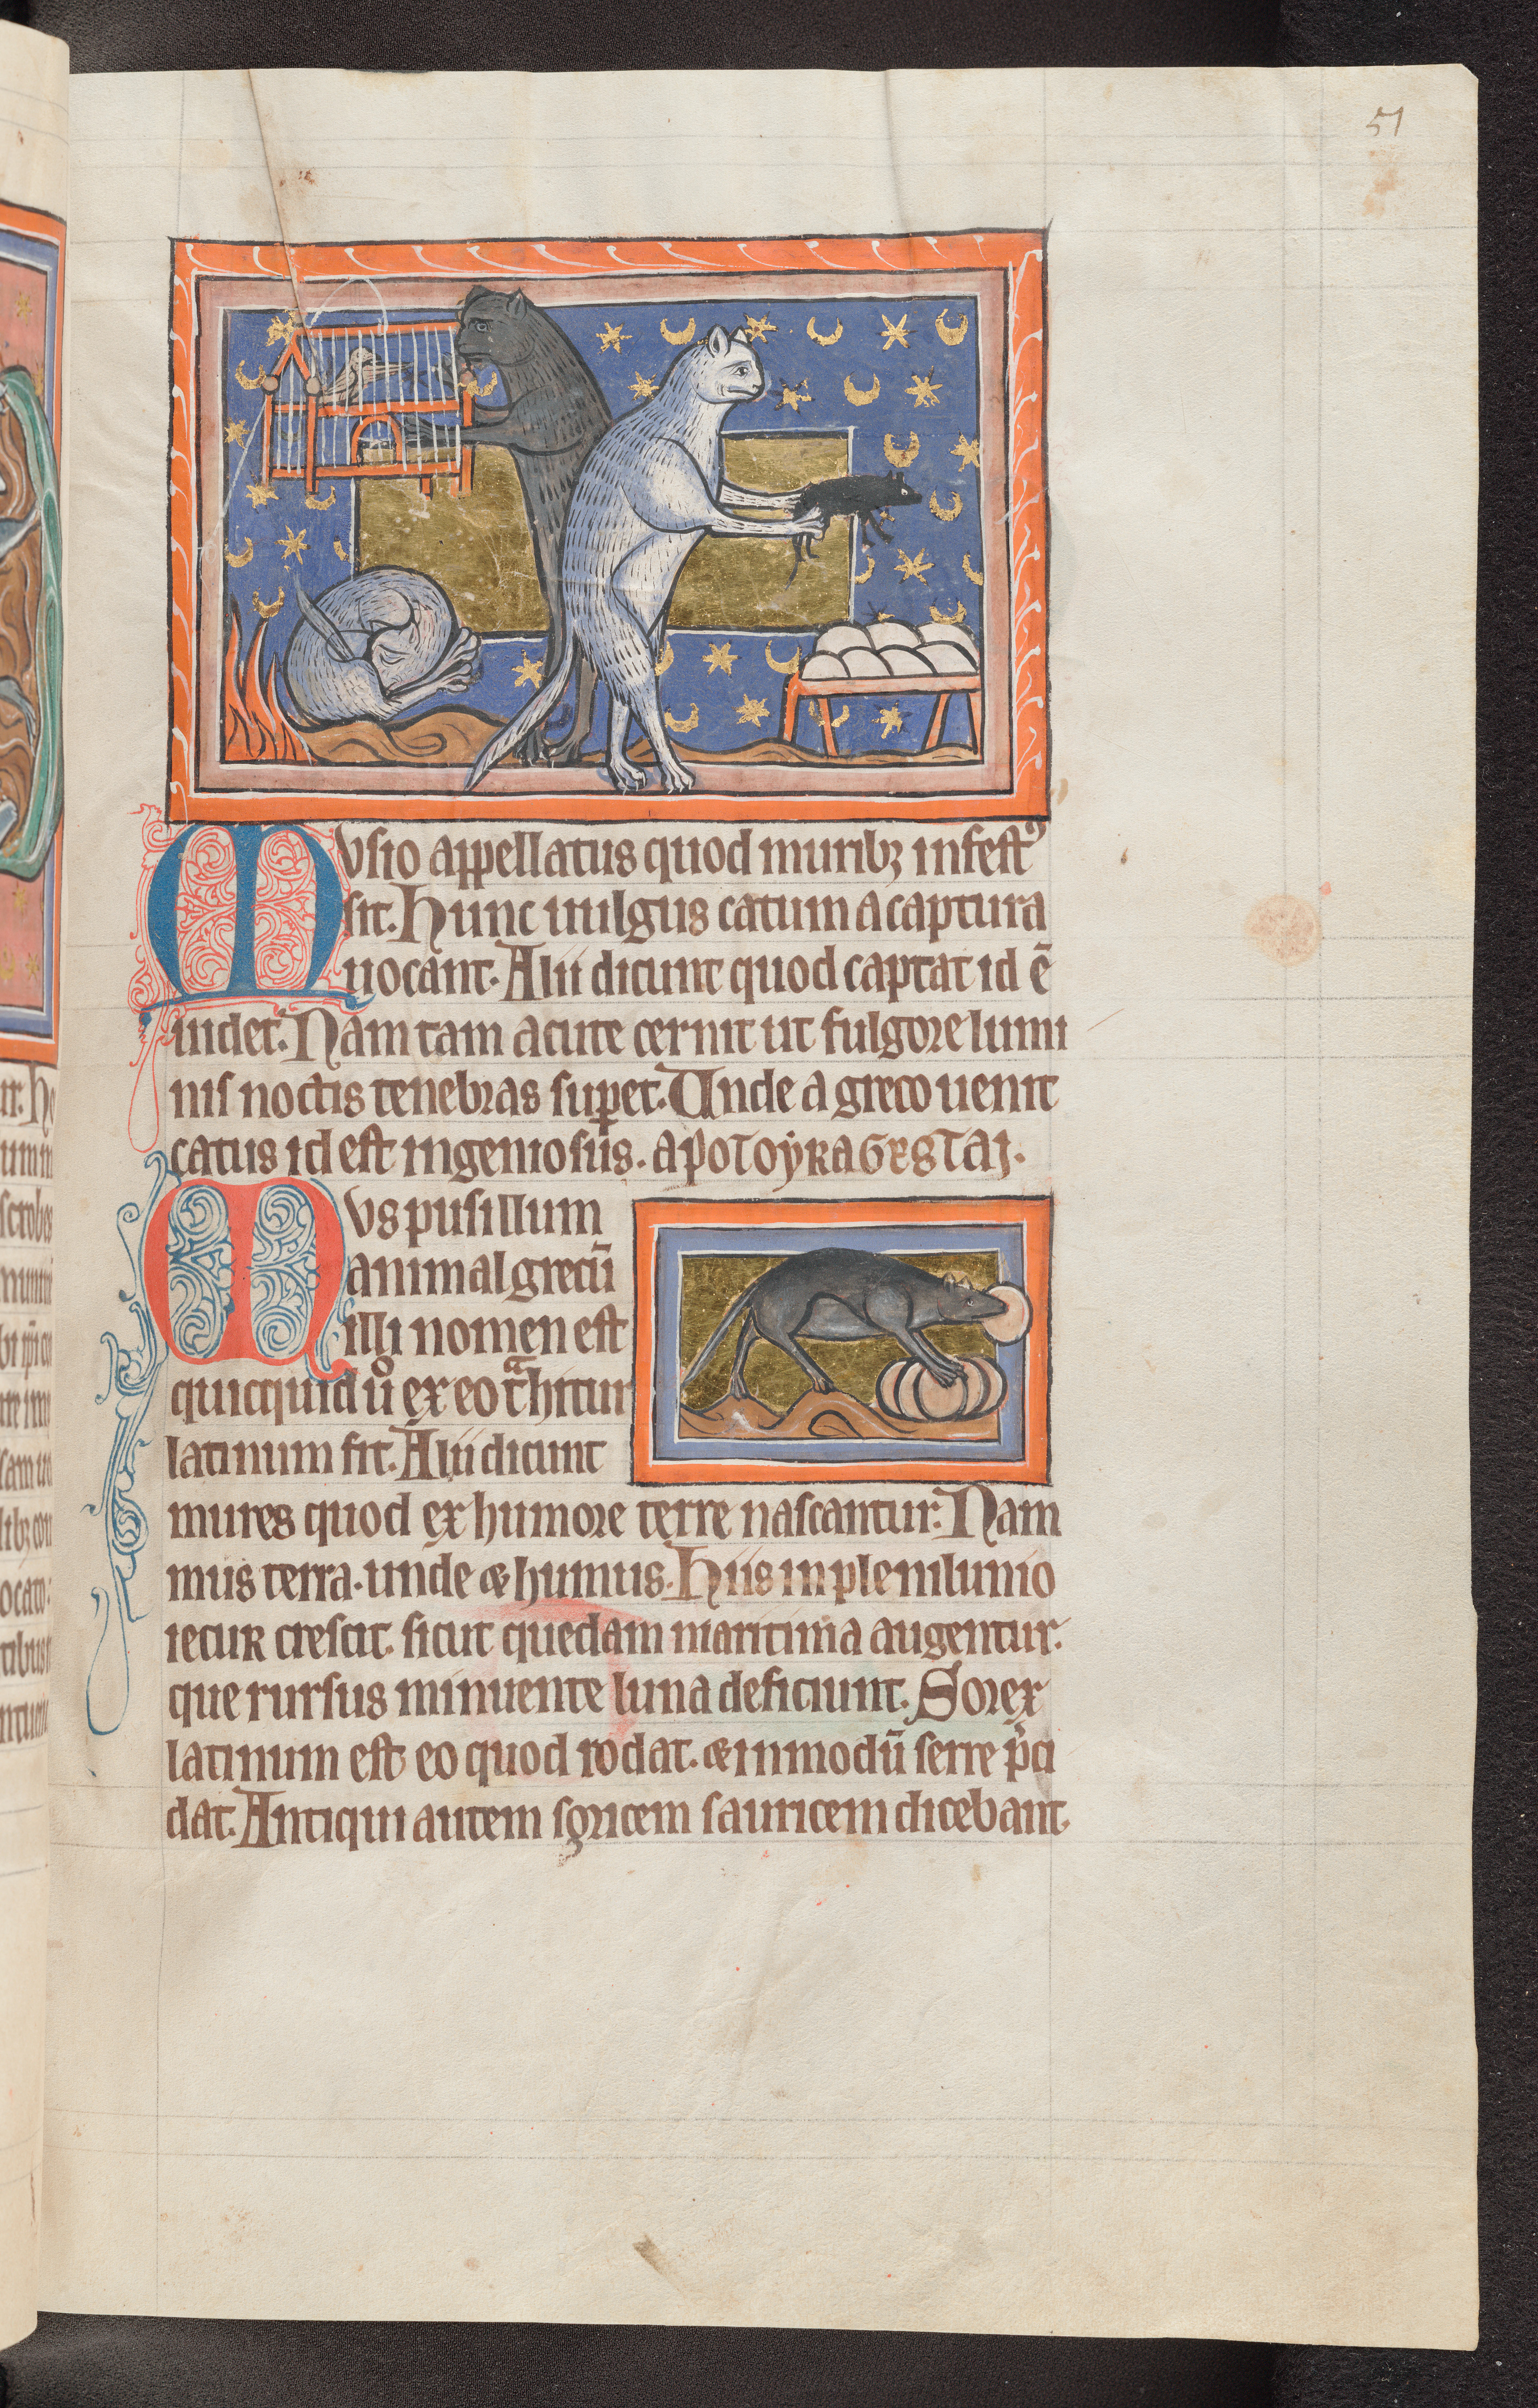 51
Musio appellatus quod muribꝫ infestꝰ
sit. Hunc uulgus catum a captura
uocant. Alii dicunt quod captat id ē
uidet. Nam tam acute cernit ut fulgore lumi
nis noctis tenebras suꝑet. Unde a greco uenit
catus id est ingeniosus. apotoẏkagestaj.
Mus pusillum
animal grecū
illi nomen est
quicquid uͦ ex eo tͣhitur
latinum fit. Alii dicunt
mures quod ex humore terre nascantur. Nam
mus terra. unde & humus. Hiis in plenilunio
iecur crescit. sicut quedam maritima augentur.
que rursus minuente luna deficiunt. Sorex
latinum est eo quod rodat. & in modū serre p̄ci
dat. Antiqui autem soricem sauricem dicebant